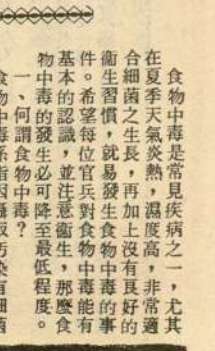 食物中毒是常見疾病之一，尤其
在夏季天氣炎熱，濕度高，非常適
合細菌之生長，再加上沒有良好的
衞生習慣，就易發生食物中毒的事
件。希望每位官兵對食物中毒能有
基本的認識，並注意衞生，那麼食
物中毒的發生必可降至最低程度。
一、何謂食物中毒？
食物中毒係指因攝取污染有細菌